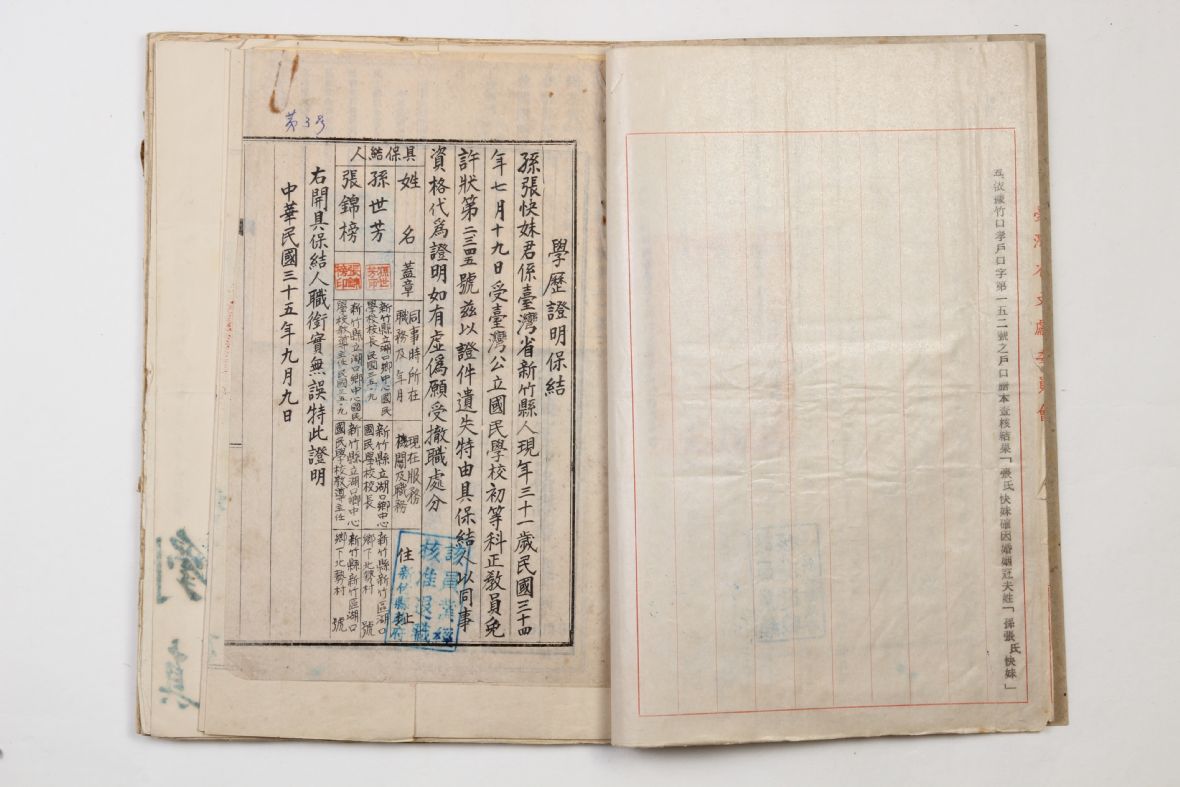 五、依據竹口孝戶口字第一五二號之戶口謄本查核結果「張氏快妹確因婚姻冠夫姓「孫張氏快妹」
第3号
學歷證明保結
孫張快妹君係臺灣省新竹縣人現年三十一歲民國三十四
年七月十九日受臺灣公立國民學校初等科正教員免
許狀第二三四五號茲以證件遺失特由具保結人以同事
資格代為證明如有虛偽願受撤職處分
具保結人
姓名
蓋章
同事時所在
職務及年月
現在服務
機關及職務
住址
孫世芳
孫世芳印
新竹縣立湖口鄉中心國民
學校校長民國三五、九
新竹縣立湖口鄉中心
國民學校校長
新竹縣新竹區湖口
鄉下北勢村 號
張錦榜
張錦榜印
新竹縣立湖口鄉中心國民
學校教導主任民國三五、九
新竹縣立湖口鄉中心
國民學校教導主任
新竹縣新竹區湖口
鄉下北勢村 號
右開具保結人職銜實無誤特此證明
中華民國三十五年九月九日
該員業經
核准退職
新竹縣政府